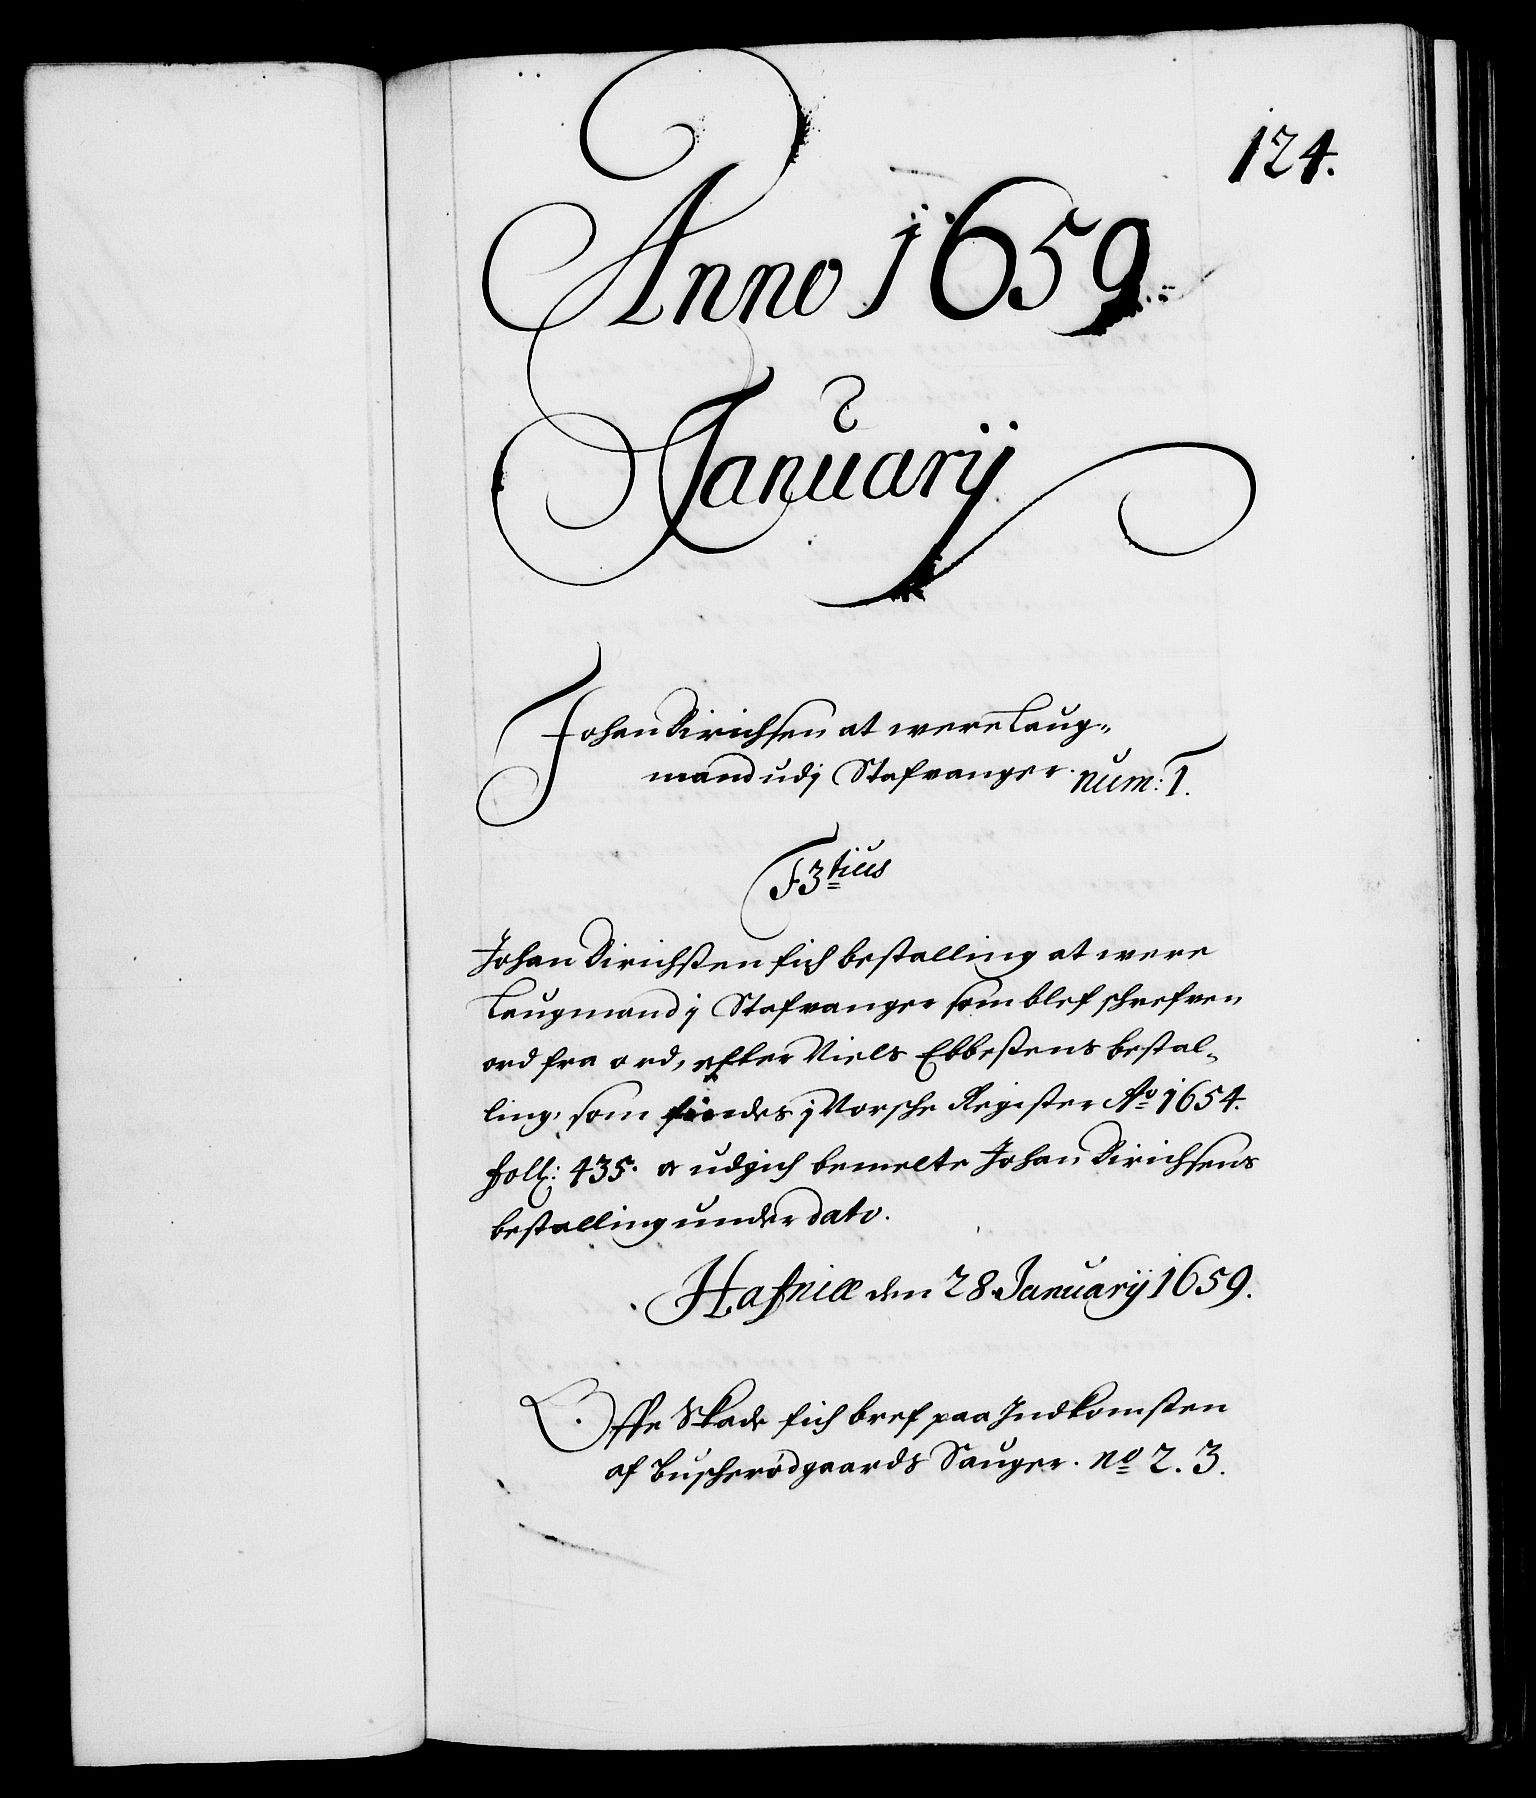 124.
Anno 1659
Januarij
Johan Dirichsen at were Laug-
mand udj Stafvanger. num: 1.
F3tius
Johan Dirichsen fich bestalling at were
Laugmand j Stafvanger som blef schrefven
ord fra ord, efter Niels Ebbesens bestal-
ling, som findes j Norsche Register Ao 1654.
foll: 435. er udgich bemelte Johan Dirichsens
bestalling under dato.
Hafniæ den 28 Januarij 1659.
Offe Skade fich bref paa Indkomsten
af Buscherødgaards Sauger. no 2. 3.